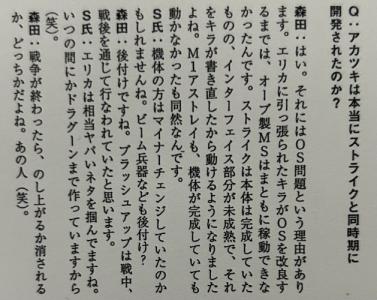 Q：アカツキは本当にストライクと同時期に
開発されたのか？
森田：はい。それにはOS問題という理由があり
ます。エリカに引っ張られたキラがOSを改良す
るまでは、オーブ製MSはまともに稼動できな
かったんです。ストライクは本体は完成していた
ものの、インターフェイス部分が未成熟で、それ
をキラが書き直したから動けるようになりました
よね。M1アストレイも、機体が完成していても
動かなかったも同然なんです。
S氏：機体の方はマイナーチェンジしていたのか
もしれませんね。ビーム兵器なども後付け？
森田：後付けですね。ブラッシュアップは戦中、
戦後を通じて行なわれていたと思います。
S氏：エリカは相当ヤバいネタを掴んでますね。
いつの間にかドラグーンまで作っていますから
（笑）。
森田：戦争が終わったら、のし上がるか消される
か、どっちかだよね。あの人（笑）。